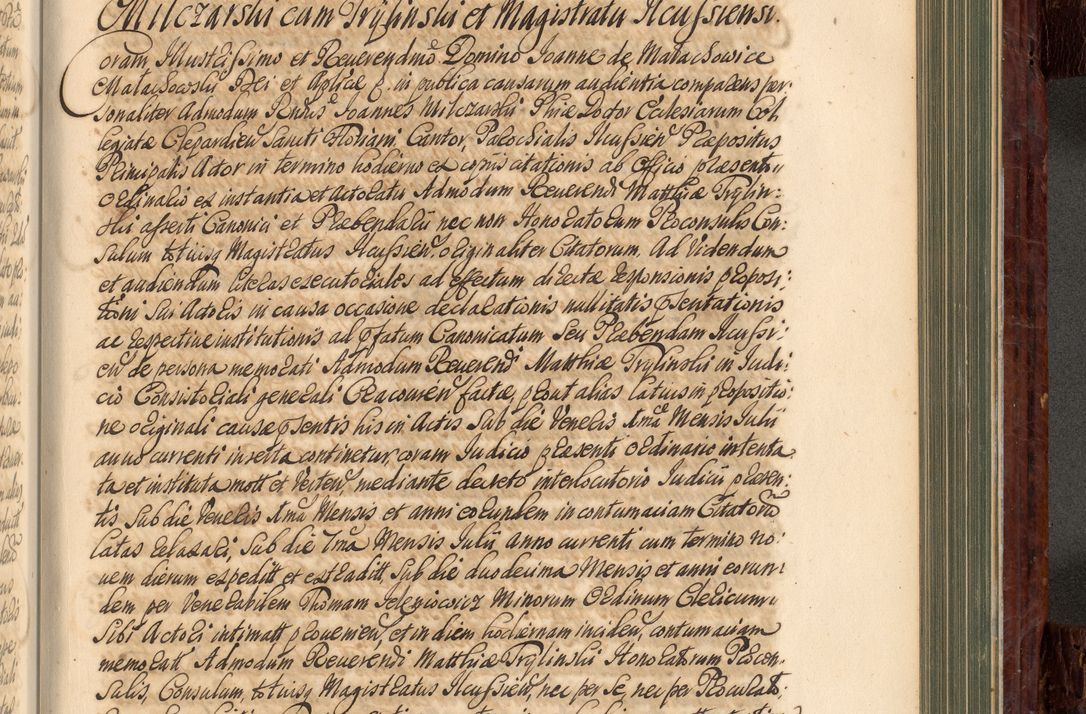 Milczarski cum Trylinski et Magistratu Ilcussiensi.
Coram Illustrissimo et Reverendmo Domino Joanne de Małachowice
Małachowski Dei et Aplicae g. in publica causarum audientia comparens per:
sonaliter Admodum Rndus Joannes Milczarski Phiae Doctor Ecclesiarum Col:
legiatae Clepardien Sancti Floriani Cantor, Parochialis Ilcussien Praepositus
Principalis Actor in termino hodierno ex copiis citationis ab officio praesenti
ordinario ex instantia et Actoratu Admodum Reverendi Matthiae Trylin:
ski asserti Canonici et Praebendarii nec non Honoratorum Proconsulis Con:
sulum totiusq Magistratus Ilcussien: originaliter Citatorum, Ad Videndum
et audiendum literas executoriales ad effectum directae responsionis proposi:
tioni sui Actoris in causa occasione declarationis nullitatis psentationis
ac respective institutionis ad pfatum Canonicatum seu Praebendam Ilcussi:
en de persona memorati Admodum Reverendi Matthiae Trylinski in Judi:
cio Consistoriali generali Cracovien factae, prout alias latius in propositio:
ne originali causae psentis his in Actis Sub die Veneris 1ma Mensis Julii
anno currenti inserta continetur, coram Judicio praesenti ordinario intenta
ta et instituta mott et verten, mediante decreto interlocutorio Judicii praesen:
tis Sub die Veneris 1ma Mensis et anni eorundem in contumaciam Citatoru
latas relaxari, Sub die 1ma Mensis Julii anno currenti cum termino no:
vem dierum expeditt et extraditt, Sub die duodecima Mensis et anni eorun:
dem per Venerabilem Thomam Minorum Ordinum Clericum
Sibi Actori intimatt provenien, et in diem hodiernam inciden, contumaciam
memoratt Admodum Reverendi Matthiae Trylinski Honoratorum Procon:
sulis, Consulum, totiusq Magistratus Ilcussien, nec per se, nec per Procurato: